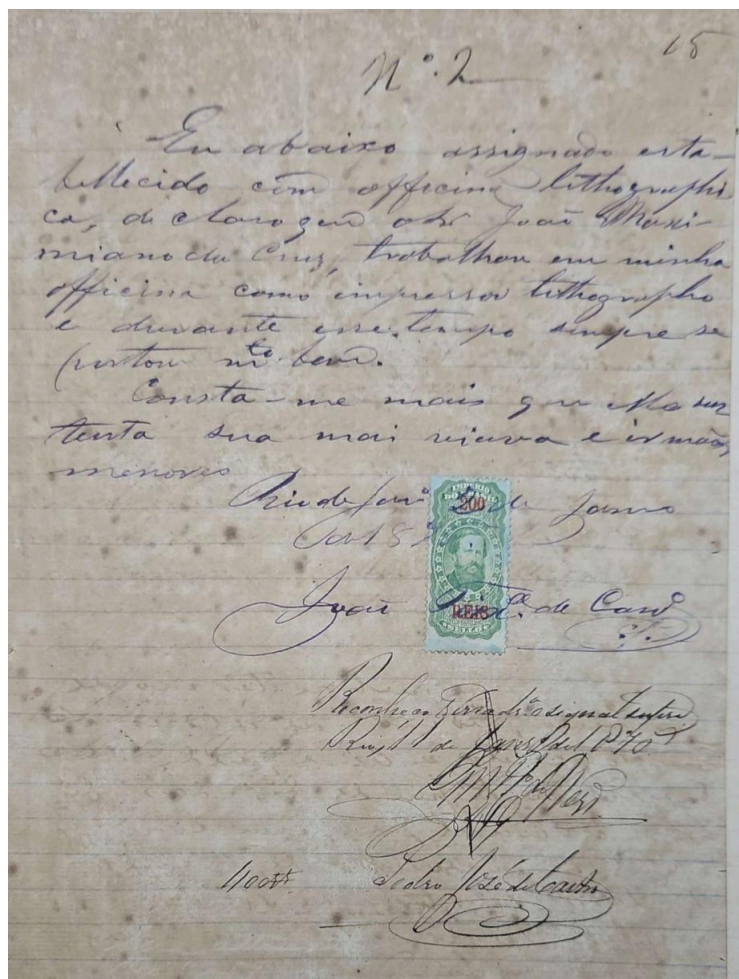 15
Nº. 2
Eu abaixo assignado esta-
bellecido com officina lithographi
ca, declaro que o Sr João Maxi-
miano da Cruz, trabalhou em minha
officina como impressor lithographo
e durante esse tempo sempre se
portou mto bem.
Consta-me mais que elle sus
tenta sua mai viuva e irmãos
menores
Rio de Janro de Janro
de 18
IMPERIO
DO BRAZIL
200
REIS
João de Carvo
Reconheço
Rio, 11 de Janeiro de 1870
400rs
Pedro José de Castro